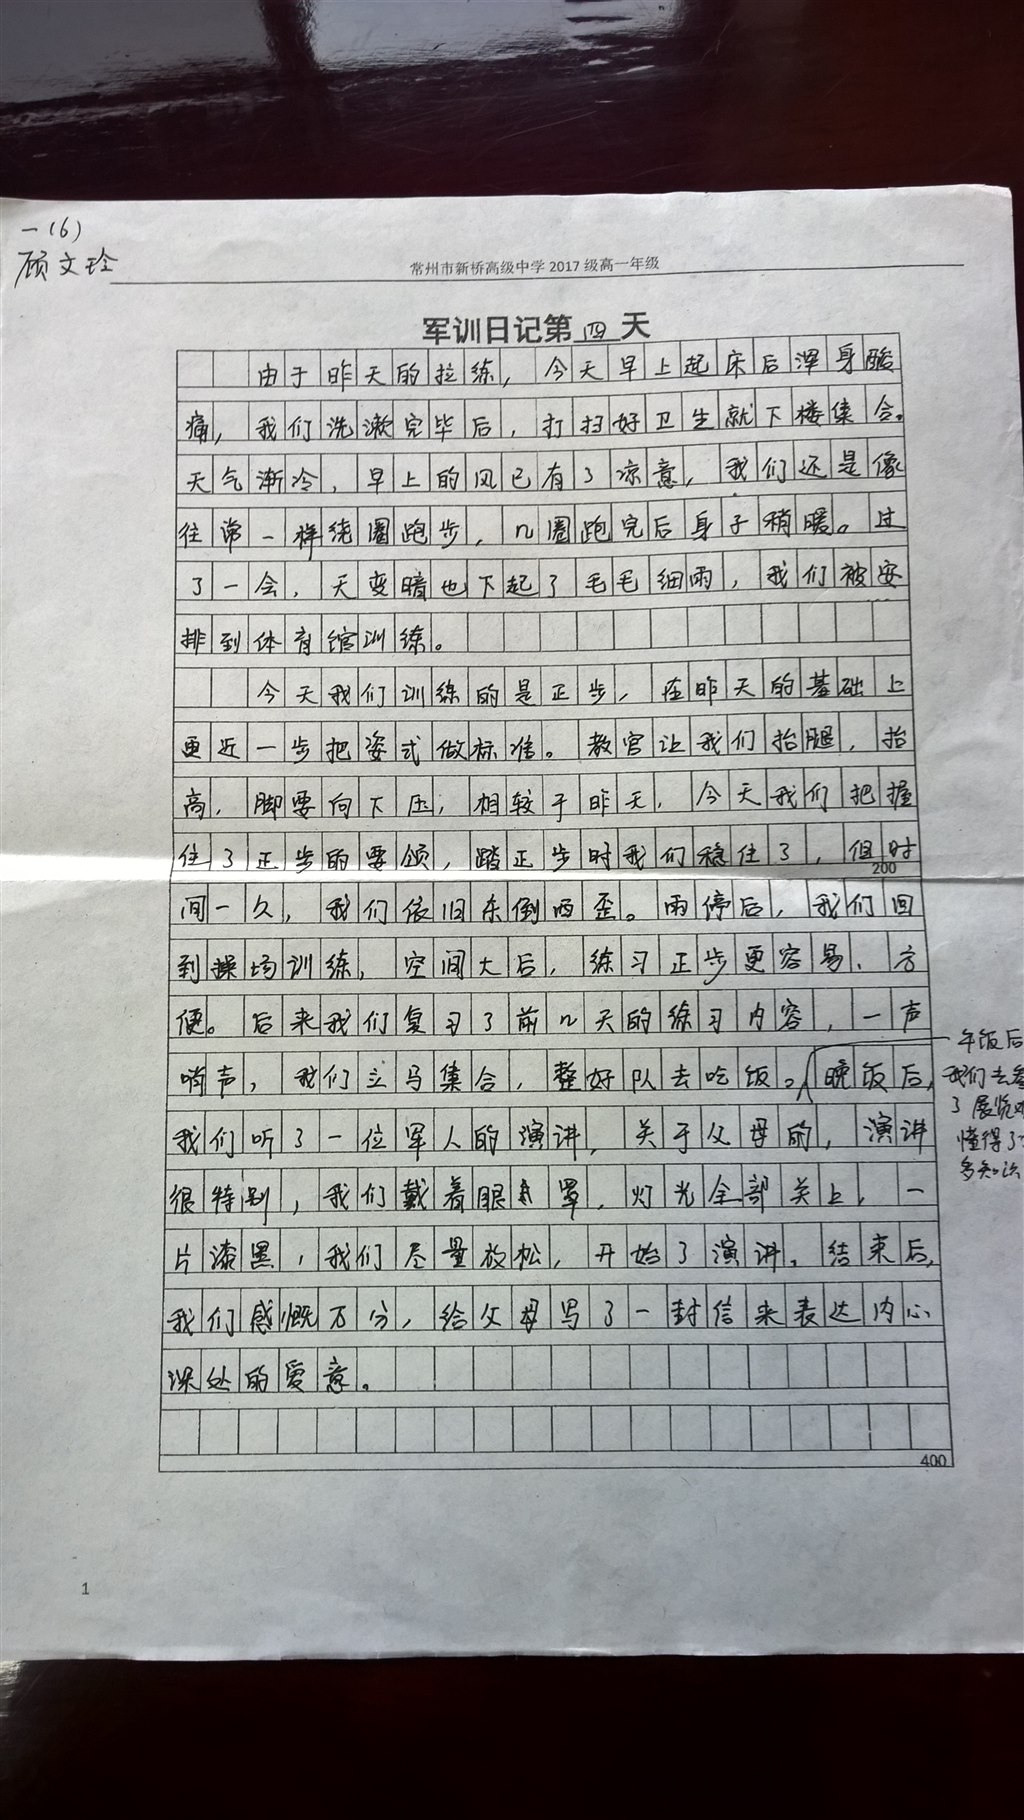 一(6)
顾文玲
常州市新桥高级中学 2017 级高一年级
军训日记第四天
由于昨天的拉练，今天早上起床后浑身酸
痛，我们洗漱完毕后，打扫好卫生就下楼集合。
天气渐冷，早上的风已有了凉意，我们还是像
往常一样绕圈跑步，几圈跑完后身子稍暖。过
了一会，天变暗也下起了毛毛细雨，我们被安
排到体育馆训练。
今天我们训练的是正步，在昨天的基础上
更近一步把姿式做标准。教官让我们抬腿，抬
高，脚要向下压，相较于昨天，今天我们把握
住了正步的要领，踏正步时我们稳住了，但时
200
间一久，我们依旧东倒西歪。雨停后，我们回
到操场训练，空间大后，练习正步更容易、方
便。后来我们复习了前几天的练习内容，一声
哨声，我们立马集合，整好队去吃饭。晚饭后，
午饭后
我们去参
了展览
懂得了
多知识
我们听了一位军人的演讲，关于父母的，演讲
很特别，我们戴着眼罩，灯光全部关上，一
片漆黑，我们尽量放松，开始了演讲。结束后，
我们感慨万分，给父母写了一封信来表达内心
深处的爱意。
400
1